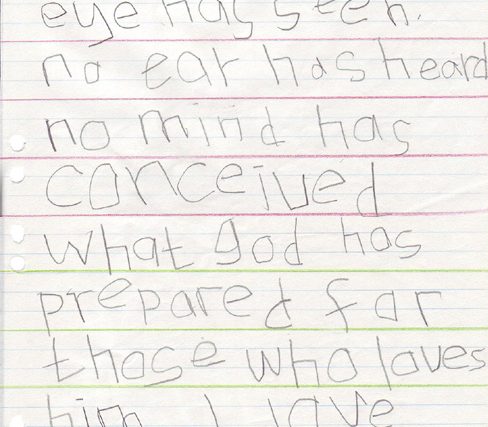 eye has seen.
no ear has heard
no mind has
conceived
what god has
prepared for
those who loves
him I love